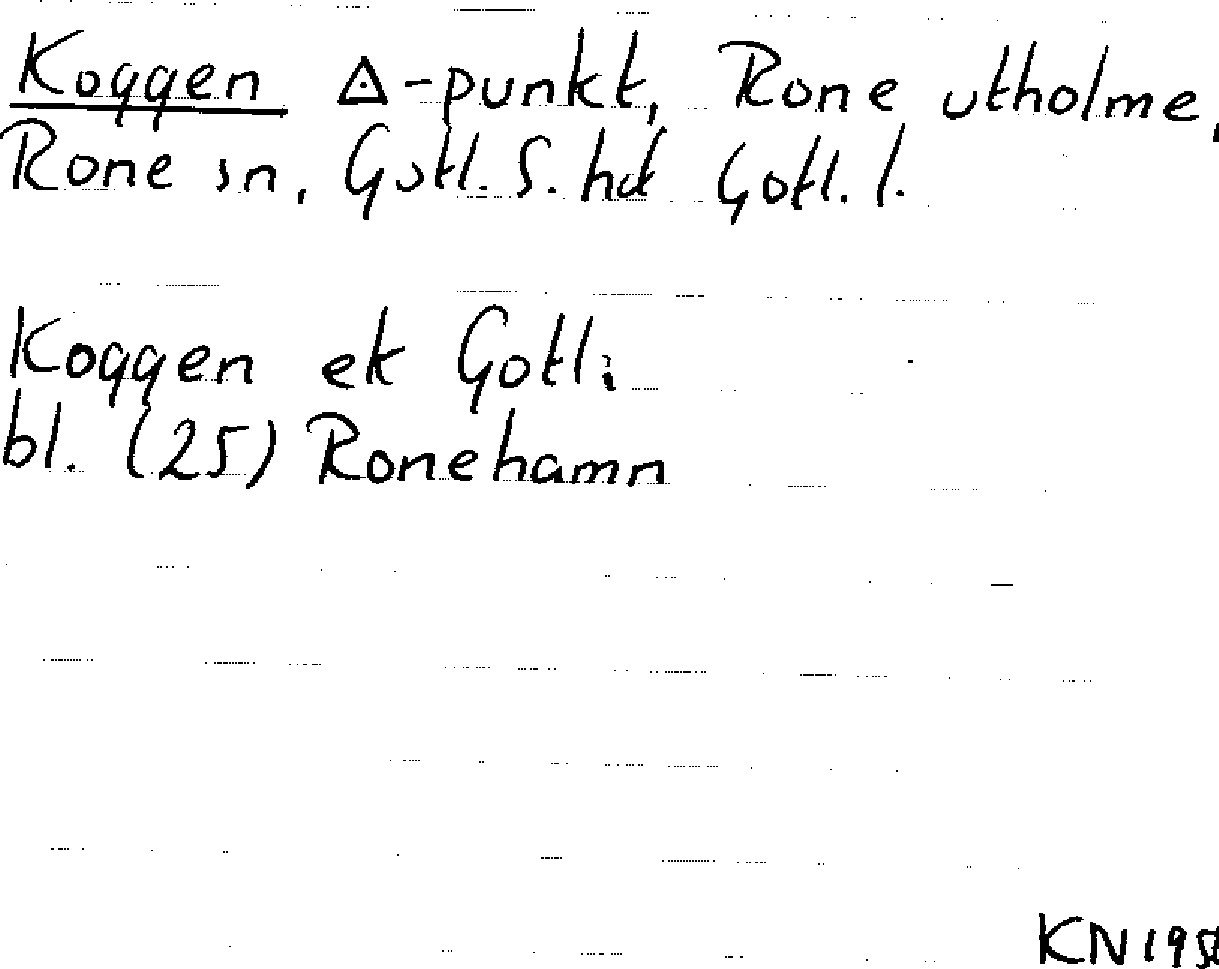 Koggen ◬-punkt, Rone utholme,
Rone sn, Gotl. S. hd Gotl. l.
Koggen ek Gotl.
bl. (25) Ronehamn
KN